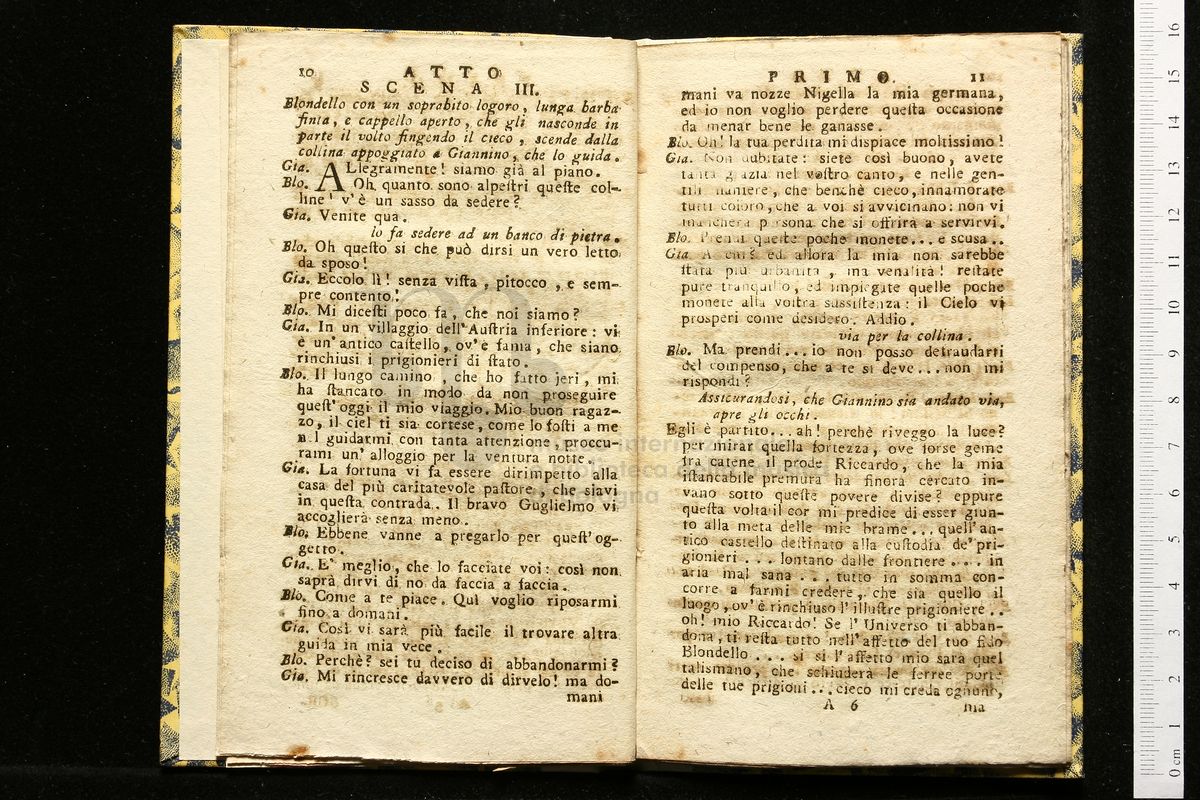 10 ATTO
SCENA III.
Blondello con un soprabito logoro, lunga barba
finta, e cappello aperto, che gli nasconde in
parte il volto fingendo il cieco, scende dalla
collina appoggiato a Giannino, che lo guida.
Gia. ALlegramente! siamo già al piano.
Blo. Oh quanto sono alpeſtri queſte col-
line! v'è un sasso da sedere?
Gia. Venite qua.
lo fa sedere ad un banco di pietra.
Blo. Oh queſto si che può dirsi un vero letto
da sposo!
Gia. Eccolo lì! senza viſta, pitocco, e sem-
pre contento!
Blo. Mi diceſti poco fa, che noi siamo?
Gia. In un villaggio dell'Auſtria inferiore: vi
è un'antico caſtello, ov'è fama, che siano
rinchiusi i prigionieri di ſtato.
Blo. Il lungo camino, che ho fatto jeri, mi
ha ſtancato in modo da non proseguire
queſt'oggi il mio viaggio. Mio buon ragaz-
zo, il ciel ti sia cortese, come lo foſti a me
nel guidarmi con tanta attenzione, proccu-
rami un'alloggio per la ventura notte.
Gia. La fortuna vi fa essere dirimpetto alla
casa del più caritatevole paſtore, che siavi
in queſta contrada. Il bravo Guglielmo vi
accoglierà senza meno.
Blo. Ebbene vanne a pregarlo per queſt'og-
getto.
Gia. E' meglio, che lo facciate voi: così non
saprà dirvi di no da faccia a faccia.
Blo. Come a te piace. Quì voglio riposarmi
fino a domani.
Gia. Così vi sarà più facile il trovare altra
guida in mia vece.
Blo. Perchè? sei tu deciso di abbandonarmi?
Gia. Mi rincresce davvero di dirvelo! ma do-
mani
PRIMO. 11
mani va nozze Nigella la mia germana,
ed io non voglio perdere queſta occasione
da menar bene le ganasse.
Blo. Oh! la tua perdita mi dispiace moltissimo!
Gia. Non dubitate: siete così buono, avete
tanta grazia nel voſtro canto, e nelle gen-
tili maniere, che benchè cieco, innamorate
tutti coloro, che a voi si avvicinano: non vi
mancherà persona che si offrirà a servirvi.
Blo. Prendi queſte poche monete... e scusa..
Gia. A chi? ed allora la mia non sarebbe
ſtata più urbanità, ma venalità! reſtate
pure tranquillo, ed impiegate quelle poche
monete alla voſtra sussiſtenza: il Cielo vi
prosperi come desidero. Addio.
via per la collina.
Blo. Ma prendi... io non posso defraudarti
del compenso, che a te si deve... non mi
rispondi?
Assicurandosi, che Giannino sia andato via,
apre gli occhi.
Egli è partito... ah! perchè riveggo la luce?
per mirar quella fortezza, ove forse geme
fra catene il prode Riccardo, che la mia
iſtancabile premura ha finora cercato in-
vano sotto queſte povere divise? eppure
queſta volta il cor mi predice di esser giun-
to alla meta delle mie brame... quell'an-
tico caſtello deſtinato alla cuſtodia de'pri-
gionieri... lontano dalle frontiere.... in
aria mal sana... tutto in somma con-
corre a farmi credere, che sia quello il
luogo, ov'è rinchiuso l'illuſtre prigioniere..
oh! mio Riccardo! Se l'Universo ti abban-
dona, ti reſta tutto nell'affetto del tuo fido
Blondello... si si l'affetto mio sarà quel
talismano, che schiuderà le ferree porte
delle tue prigioni... cieco mi creda ognuno,
A 6 ma
0 cm 1 2 3 4 5 6 7 8 9 10 11 12 13 14 15 16